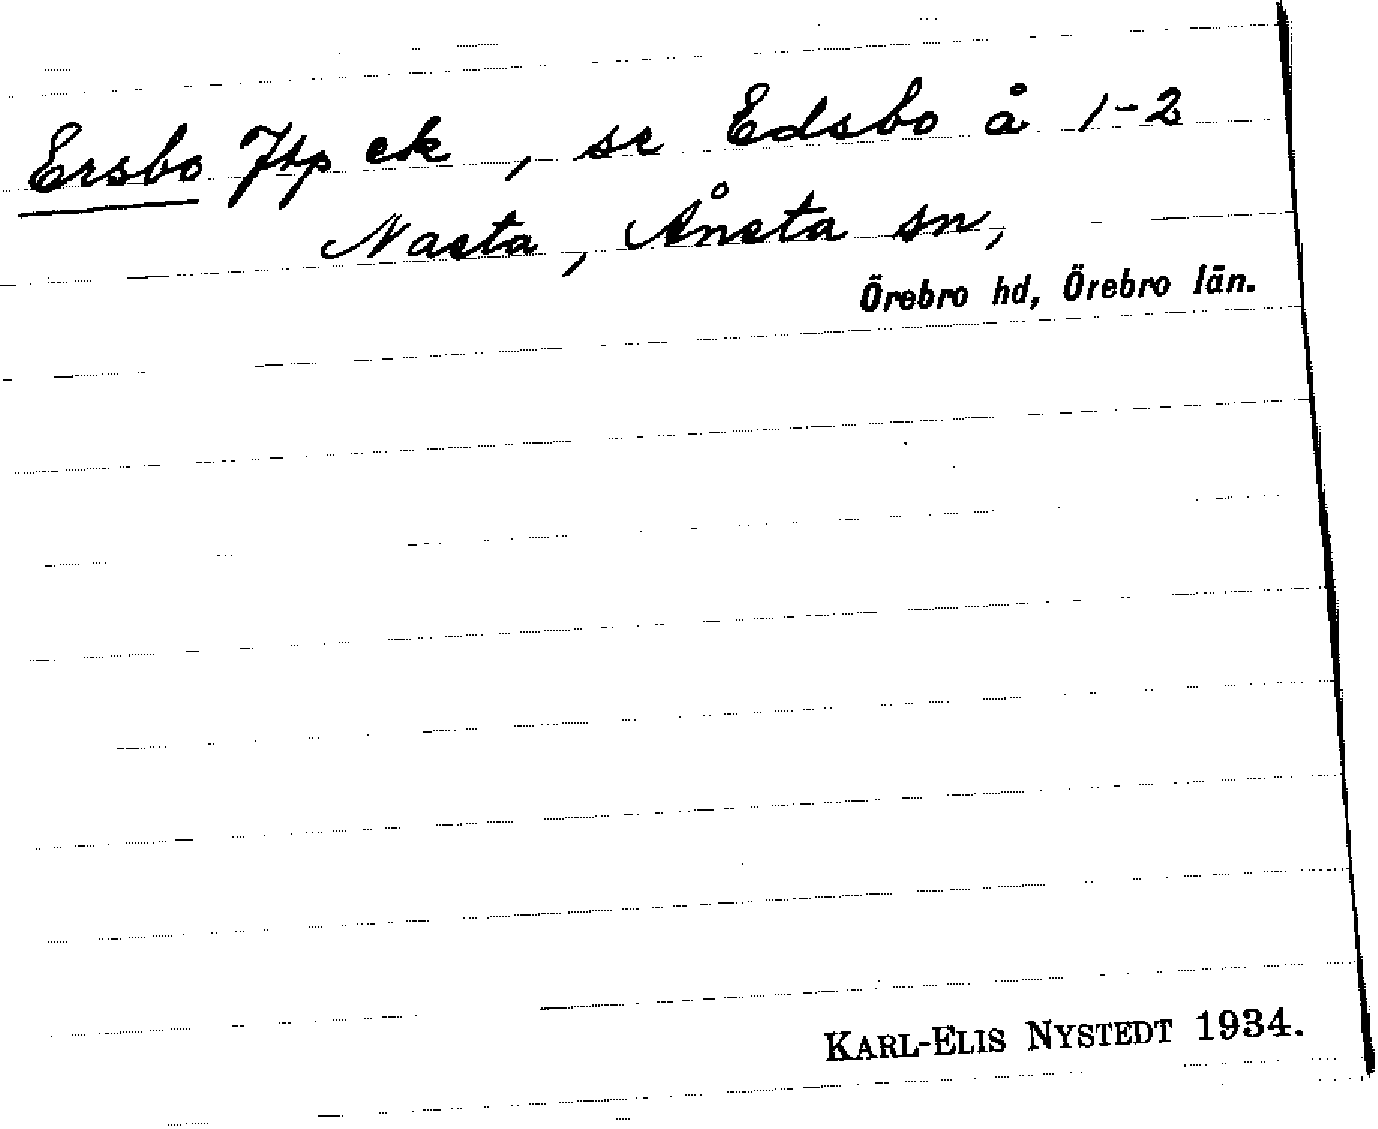 Ersbo Jtp ek, se Edsbo å 1-2
Nasta, Ånsta sn,
Örebro hd, Örebro län.
KARL-ELIS NYSTEDT 1934.